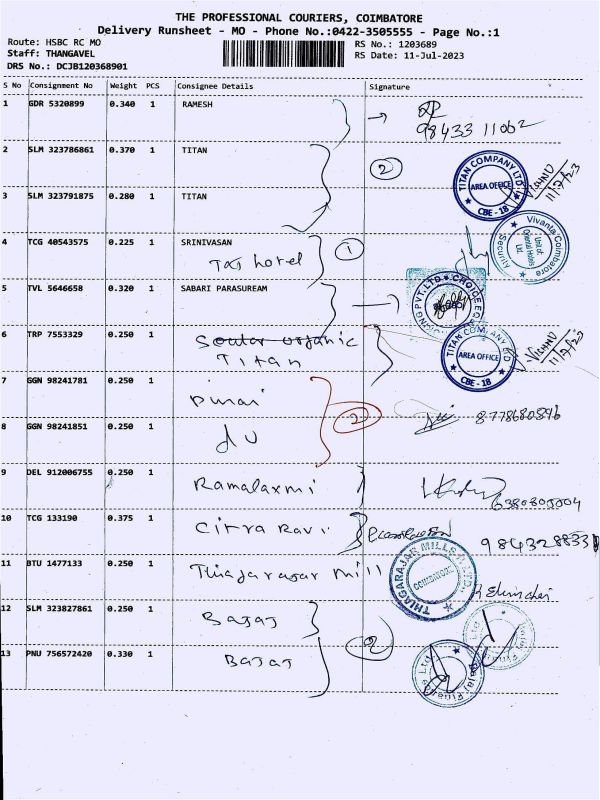 THE PROFESSIONAL COURIERS, COIMBATORE
Delivery Runsheet - MO - Phone No.:0422-3505555 - Page No.:1
Route: HSBC RC MO
RS No.: 1203689
Staff: THANGAVEL
RS Date: 11-Jul-2023
DRS No.: DCJB120368901
S No Consignment No Weight PCS Consignee Details Signature
1 GDR 5320899 0.340 1 RAMESH
98433 11062
2 SLM 323786861 0.370 1 TITAN 2
TITAN COMPANY LTD AREA OFFICE CBE - 18
VISHNU
11/7/23
3 SLM 323791875 0.280 1 TITAN
Vivanta Coimbatore Unit of Oriental Hotels Ltd. Security
4 TCG 40543575 0.225 1 SRINIVASAN 1
Taj hotel
5 TVL 5646658 0.320 1 SABARI PARASUREAM
PVT. LTD. CHOICE
6 TRP 7553329 0.250 1 organic
Titan
TITAN COMPANY LTD AREA OFFICE CBE - 18
VISHNU
11/7/23
7 GGN 98241781 0.250 1
2
8 GGN 98241851 0.250 1 du
9 DEL 912006755 0.250 1 Ramalaxmi
10 TCG 133190 0.375 1 Citra Ravi
11 BTU 1477133 0.250 1 Thiajarajar Mill
THIAGARAJAR MILLS COIMBATORE
12 SLM 323827861 0.250 1 Bajaj
2
13 PNU 756572420 0.330 1 Bajaj
Bajaj Finance Ltd